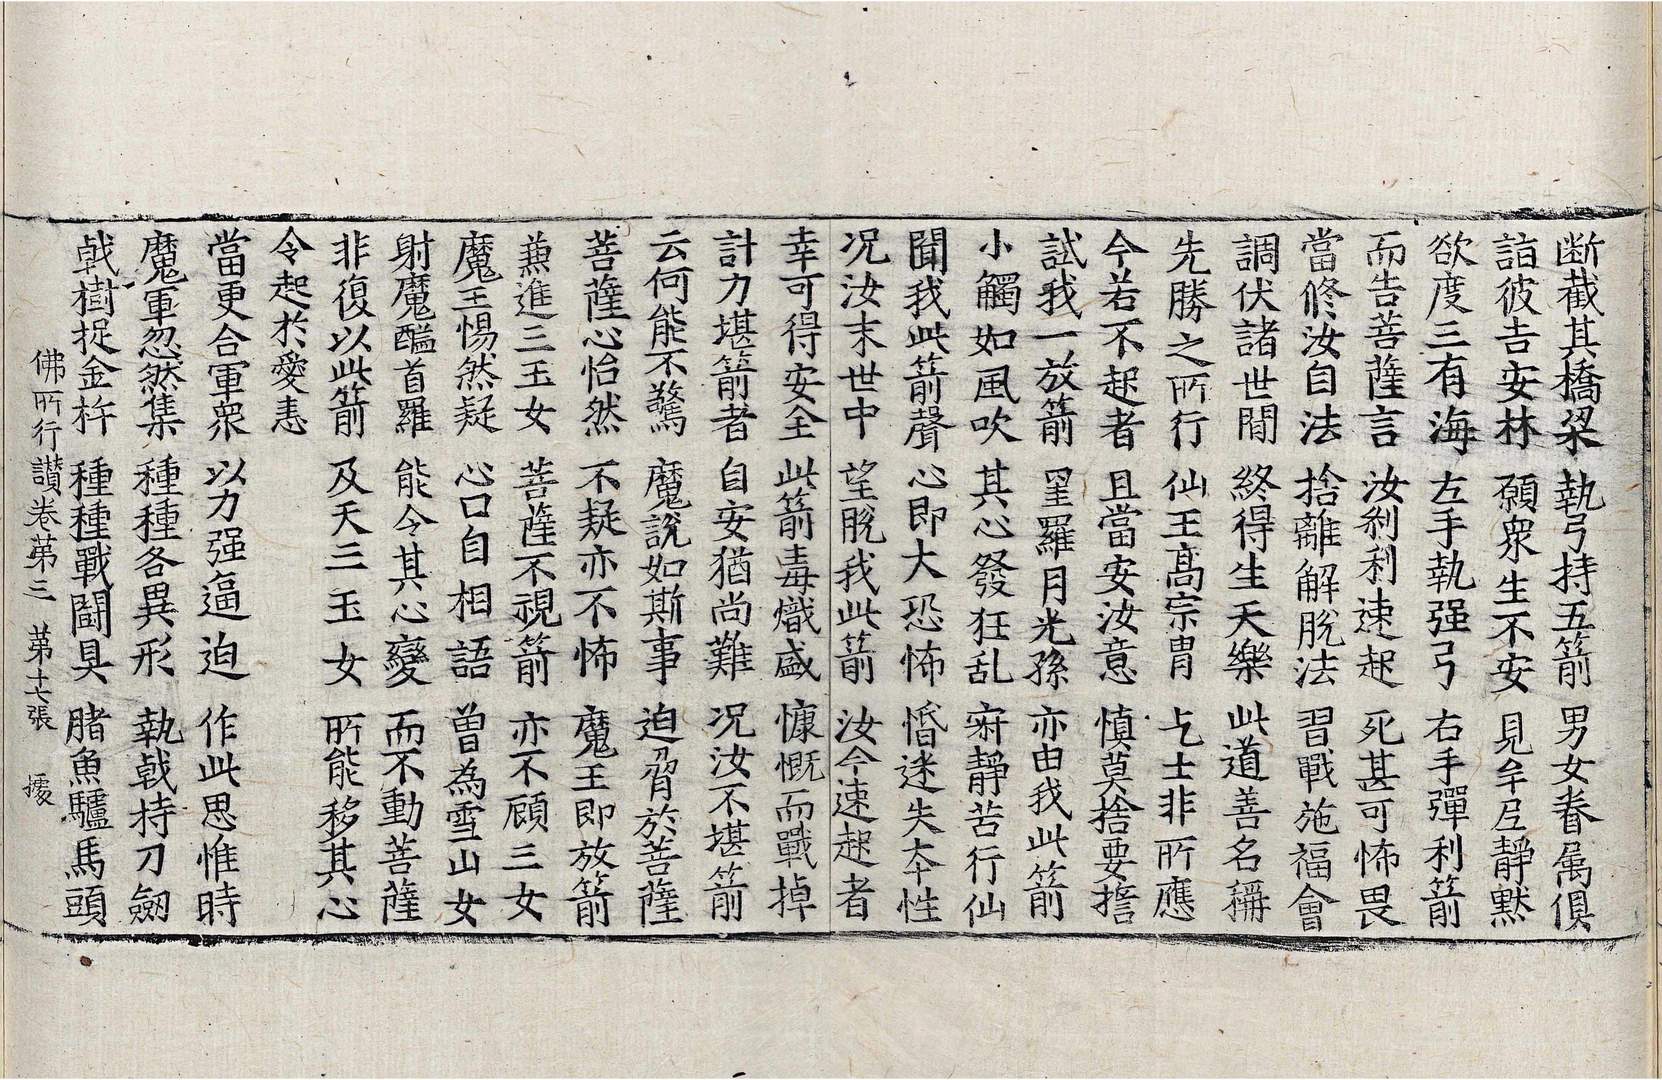 断截其橋梁 執弓持五箭 男女眷属俱
詣彼吉安林 願衆生不安 見牟尼靜黙
欲度三有海 左手執强弓 右手彈利箭
而告菩薩言 汝刹利速起 死甚可怖畏
當修汝自法 捨離解脫法 習戰施福會
調伏諸世間 終得生天樂 此道善名稱
先勝之所行 仙王高宗胄 乞士非所應
今若不起者 且當安汝意 慎莫捨要擔
試我一放箭 罣羅月光孫 亦由我此箭
小觸如風吹 其心發狂乱 寂靜苦行仙
聞我此箭聲 心即大恐怖 惛迷失本性
况汝末世中 望脫我此箭 汝今速起者
幸可得安全 此箭毒熾盛 慷慨而戰掉
計力堪箭者 自安猶尚難 况汝不堪箭
云何能不驚 魔說如斯事 迫脅於菩薩
菩薩心怡然 不疑亦不怖 魔王即放箭
兼進三玉女 菩薩不視箭 亦不顧三女
魔王惕然疑 心口自相語 曽為雪山女
射魔醯首羅 能令其心變 而不動菩薩
非復以此箭 及天三玉女 所能移其心
令起於愛恚
當更合軍衆 以力强逼迫 作此思惟時
魔軍忽然集 種種各異形 執戟持刀劒
戟樹捉金杵 種種戰鬪具 腤魚驢馬頭
佛所行讃卷苐三 苐十七張 據